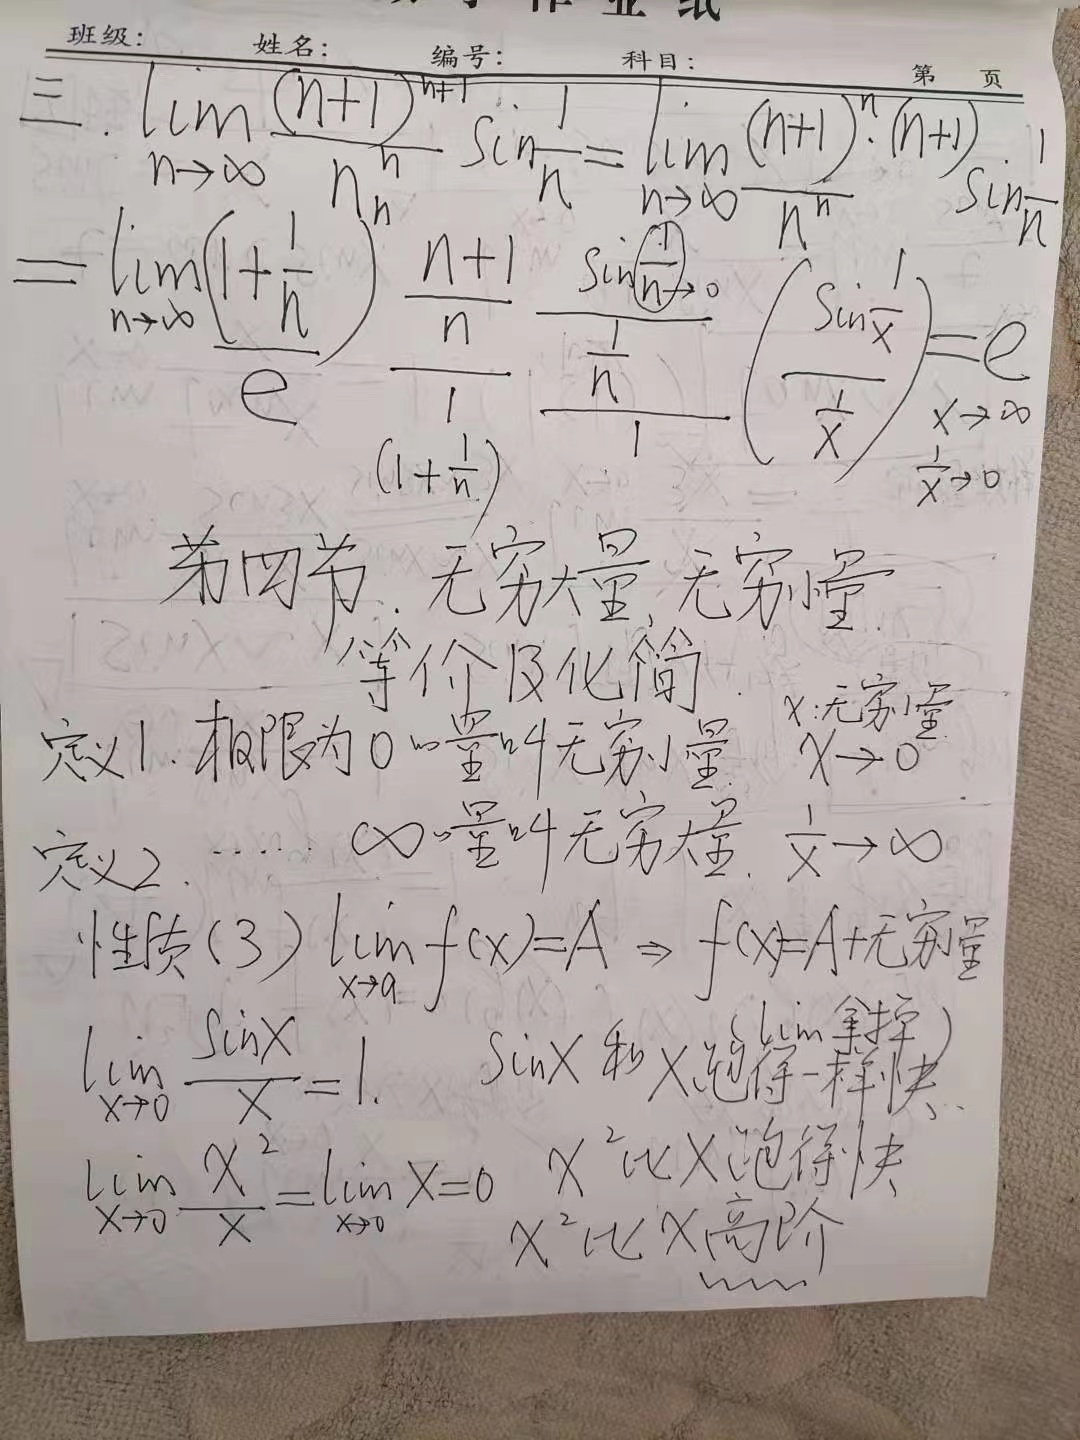 作业纸
班级: 姓名: 编号: 科目: 第 页
三. lim n→∞ (n+1)^(n+1) / n^n n sin 1/n = lim n→∞ (n+1)^n·(n+1) / n^n sin 1/n
= lim n→∞ (1+1/n)^n (n+1)/n (sin 1/n →0)/(1/n) (sin 1/x / 1/x) = e
e 1 1 x→∞
(1+1/n) 1/x→0
第四节. 无穷大量, 无穷小量.
等价及化简.
x:无穷小量
定义1. 极限为0的量叫无穷小量. x→0
定义2. …… ∞的量叫无穷大量. 1/x→∞
性质(3) lim x→a f(x)=A ⇒ f(x)=A+无穷小量
(lim 拿掉)
lim x→0 sinx/x =1. sinx和x跑得一样快.
lim x→0 x²/x = lim x→0 x=0 x²比x跑得快
x²比x高阶